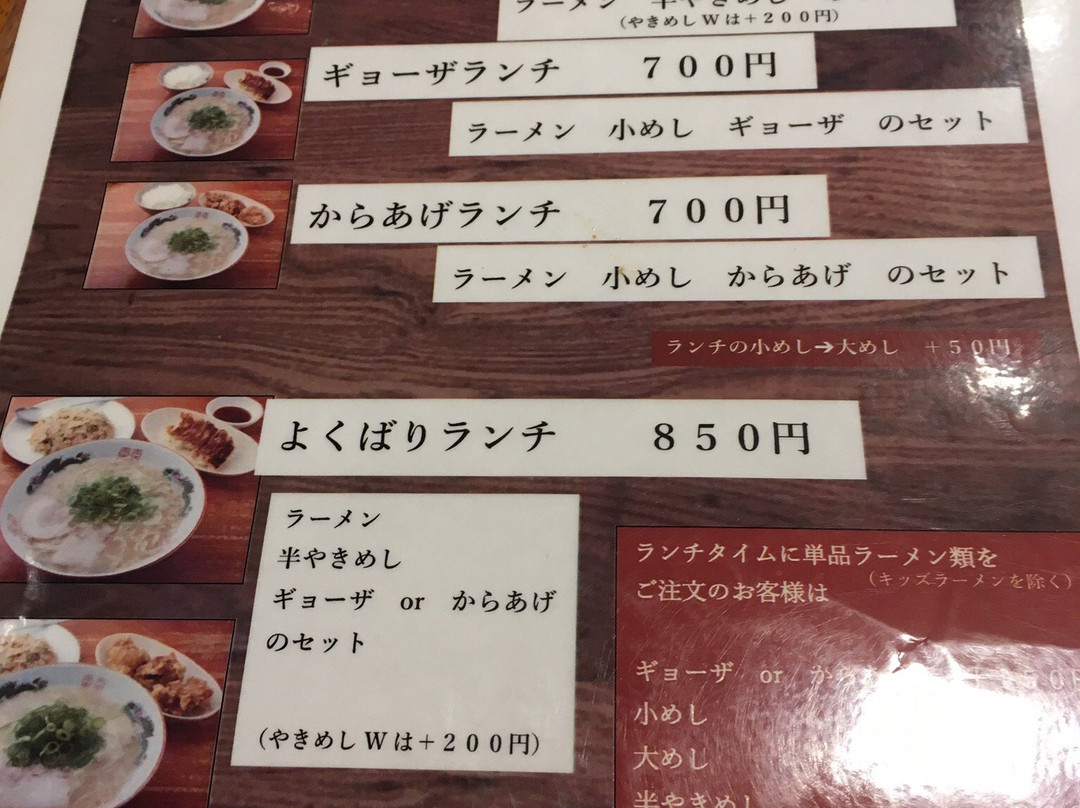 ラーメン　半やきめし
（やきめしＷは＋２００円）
ギョーザランチ　７００円
ラーメン　小めし　ギョーザ　のセット
からあげランチ　７００円
ラーメン　小めし　からあげ　のセット
ランチの小めし➔大めし　＋５０円
よくばりランチ　８５０円
ラーメン
半やきめし
ギョーザ　or　からあげ
のセット
（やきめしＷは＋２００円）
ランチタイムに単品ラーメン類を
（キッズラーメンを除く）
ご注文のお客様は
ギョーザ　or
小めし
大めし
半やきめし